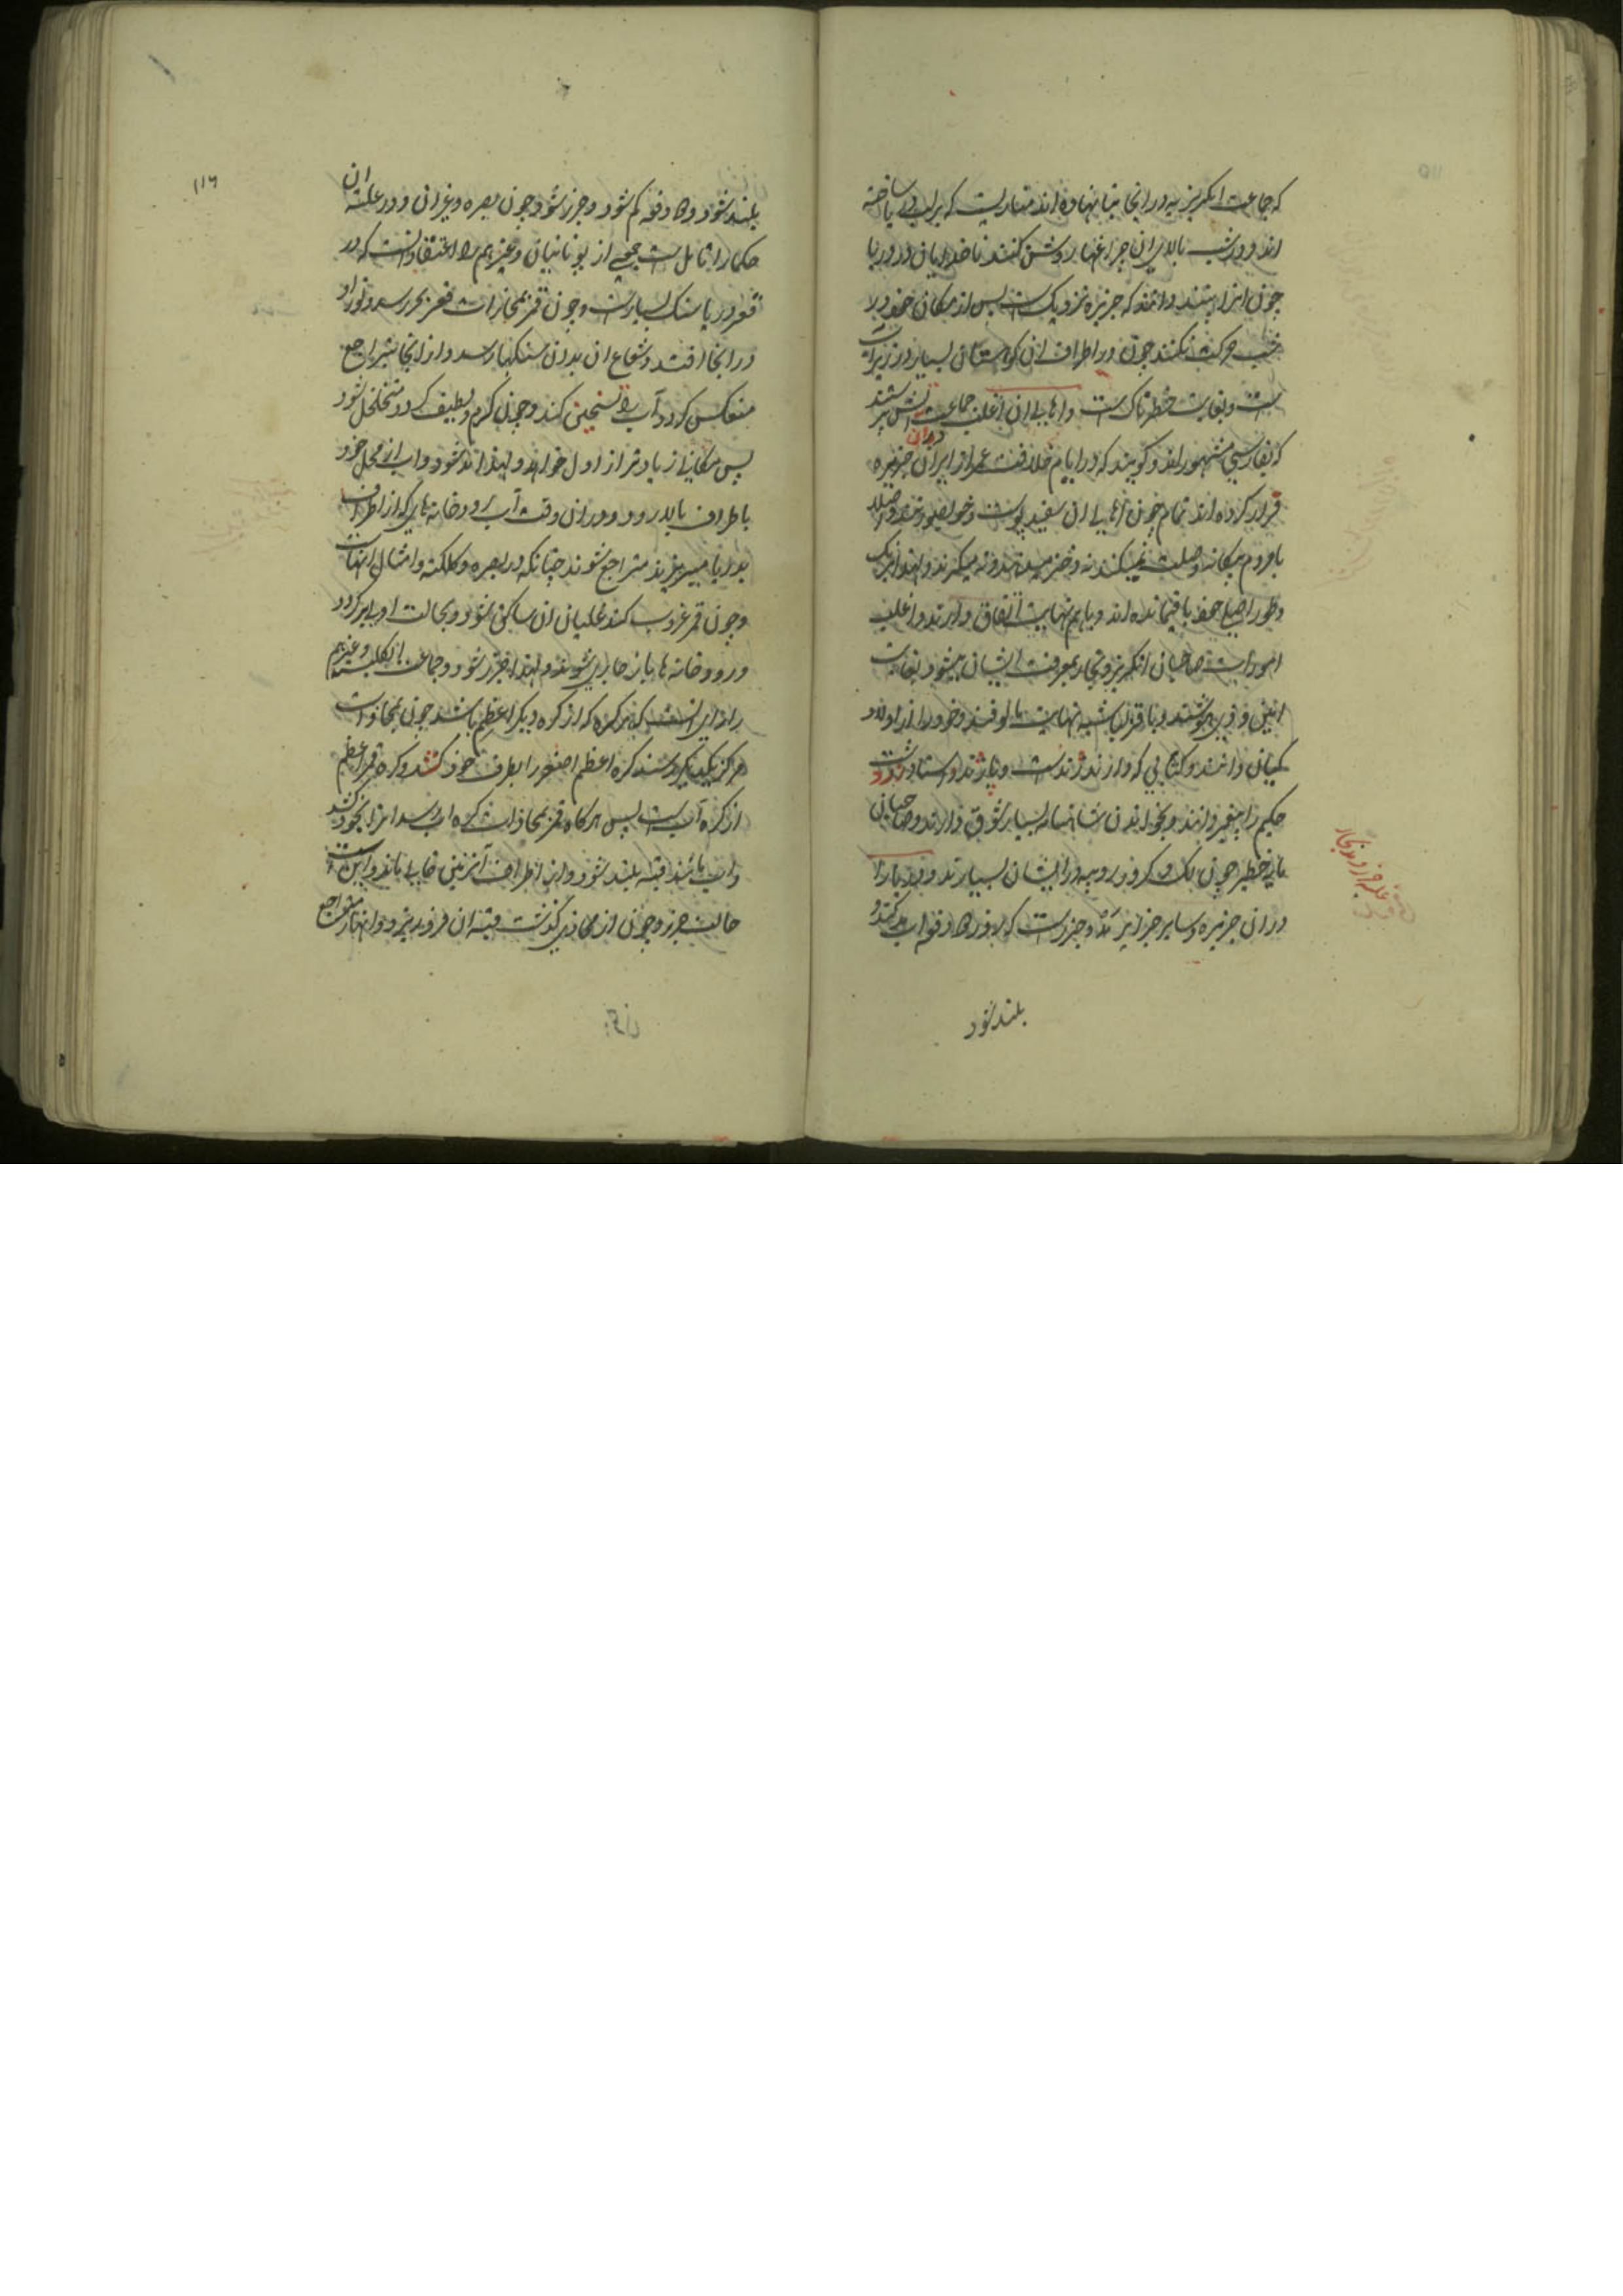 که جماعت انکریزیه در انجا بنا نهاده اند مناریست که برلب دریا ساخته
اند و در شب بالای ان چراغها روشن کنند ناخدایان در دریا
چون انرا بینند دانند که جزیره نزدیک است پس از مکان خود در
شب حرکت نکنند چون در اطراف ان کوهستان بسیار در زیر آب
است و بغایت خطرناک است و اهالی ان اغلب جماعت آتش پرستند
که بفارسی مشهور اند و کویند که در ایام خلافت عمر از ایران دران جزیره
قرار کرده اند تمام خوش اهالی ان سفید پوست و خو
با مردم بیکانه وصلت نمیکنند نه دختر میدهند و نه میکیرند و لهذا بریک
وطور اصلی خود باقیمانده اند و با هم نهایت اتفاق دارند و اغلب
امورات صاحبان انکریز و تجار بمعرفت ایشان میشود بغایت
امین و نهایت مالوفند و خود را از اولاد
کیان دانند و کتابی که دارند ژند است و پاژند و استا و زردشت
حکیم را پیغمبر دانند و بخواندن شاهنامه بسیار شوق دارند و صاحبان
مایه خطیر چون لک و کرور روپیه در ایشان بسیارند و دریا را
در ان جزیره و سایر جزایر مد و جزر است که بروز دو دفعه آب مد کند و
بلند شود
بلند شود و دو دفعه کم شود و جزر شود چون بصره و غیر ان و در علت ان
حکما را تامل است جمعی از یونانیان و غیرهم را اعتقاد انست که در
قعر دریا سنک بسیار است و چون قمر بمحازات قعر بحر رسد و نور او
در انجا افتد و شعاع ان بدان سنکها رسد و از انجا متراجع
منعکس کردد آب را تسخین کند و چون کرم و لطیف کردد متخلخل شود
پس مکانی زیادتر از اول خواهد و لهذا مد شود و اب از محل خود
باطراف بالا رود و در ان وقت آب رودخانه های که از اطراف
بدریا میریزند متراجع شوند چنانکه در بصره و کلکته و امثال انهاست
و چون قمر غروب کند غلیان ان ساکن شود و بحالت اولی برکردد
و رودخانه ها باز جاری شوند و لهذا جزر شود و جماعت انکلیسیه و غیرهم
را رای انست که هر کره که از کره دیکر اعظم باشد چون بمحازات
مراکز یکدیکر رسند کره اعظم اصغر را بطرف خود کشد و کره قمر اعظم
از کره آب است پس هرکاه قمر بمحازات کره اب رسد انرا بخود کشد
و اب مانند قبه بلند شود و اب اطراف آن زمین خالی ماند و این است
حالت جزر و چون از محاذی گذشت قبه ان فرو ریزد و انهار متراجع
۱۱۶